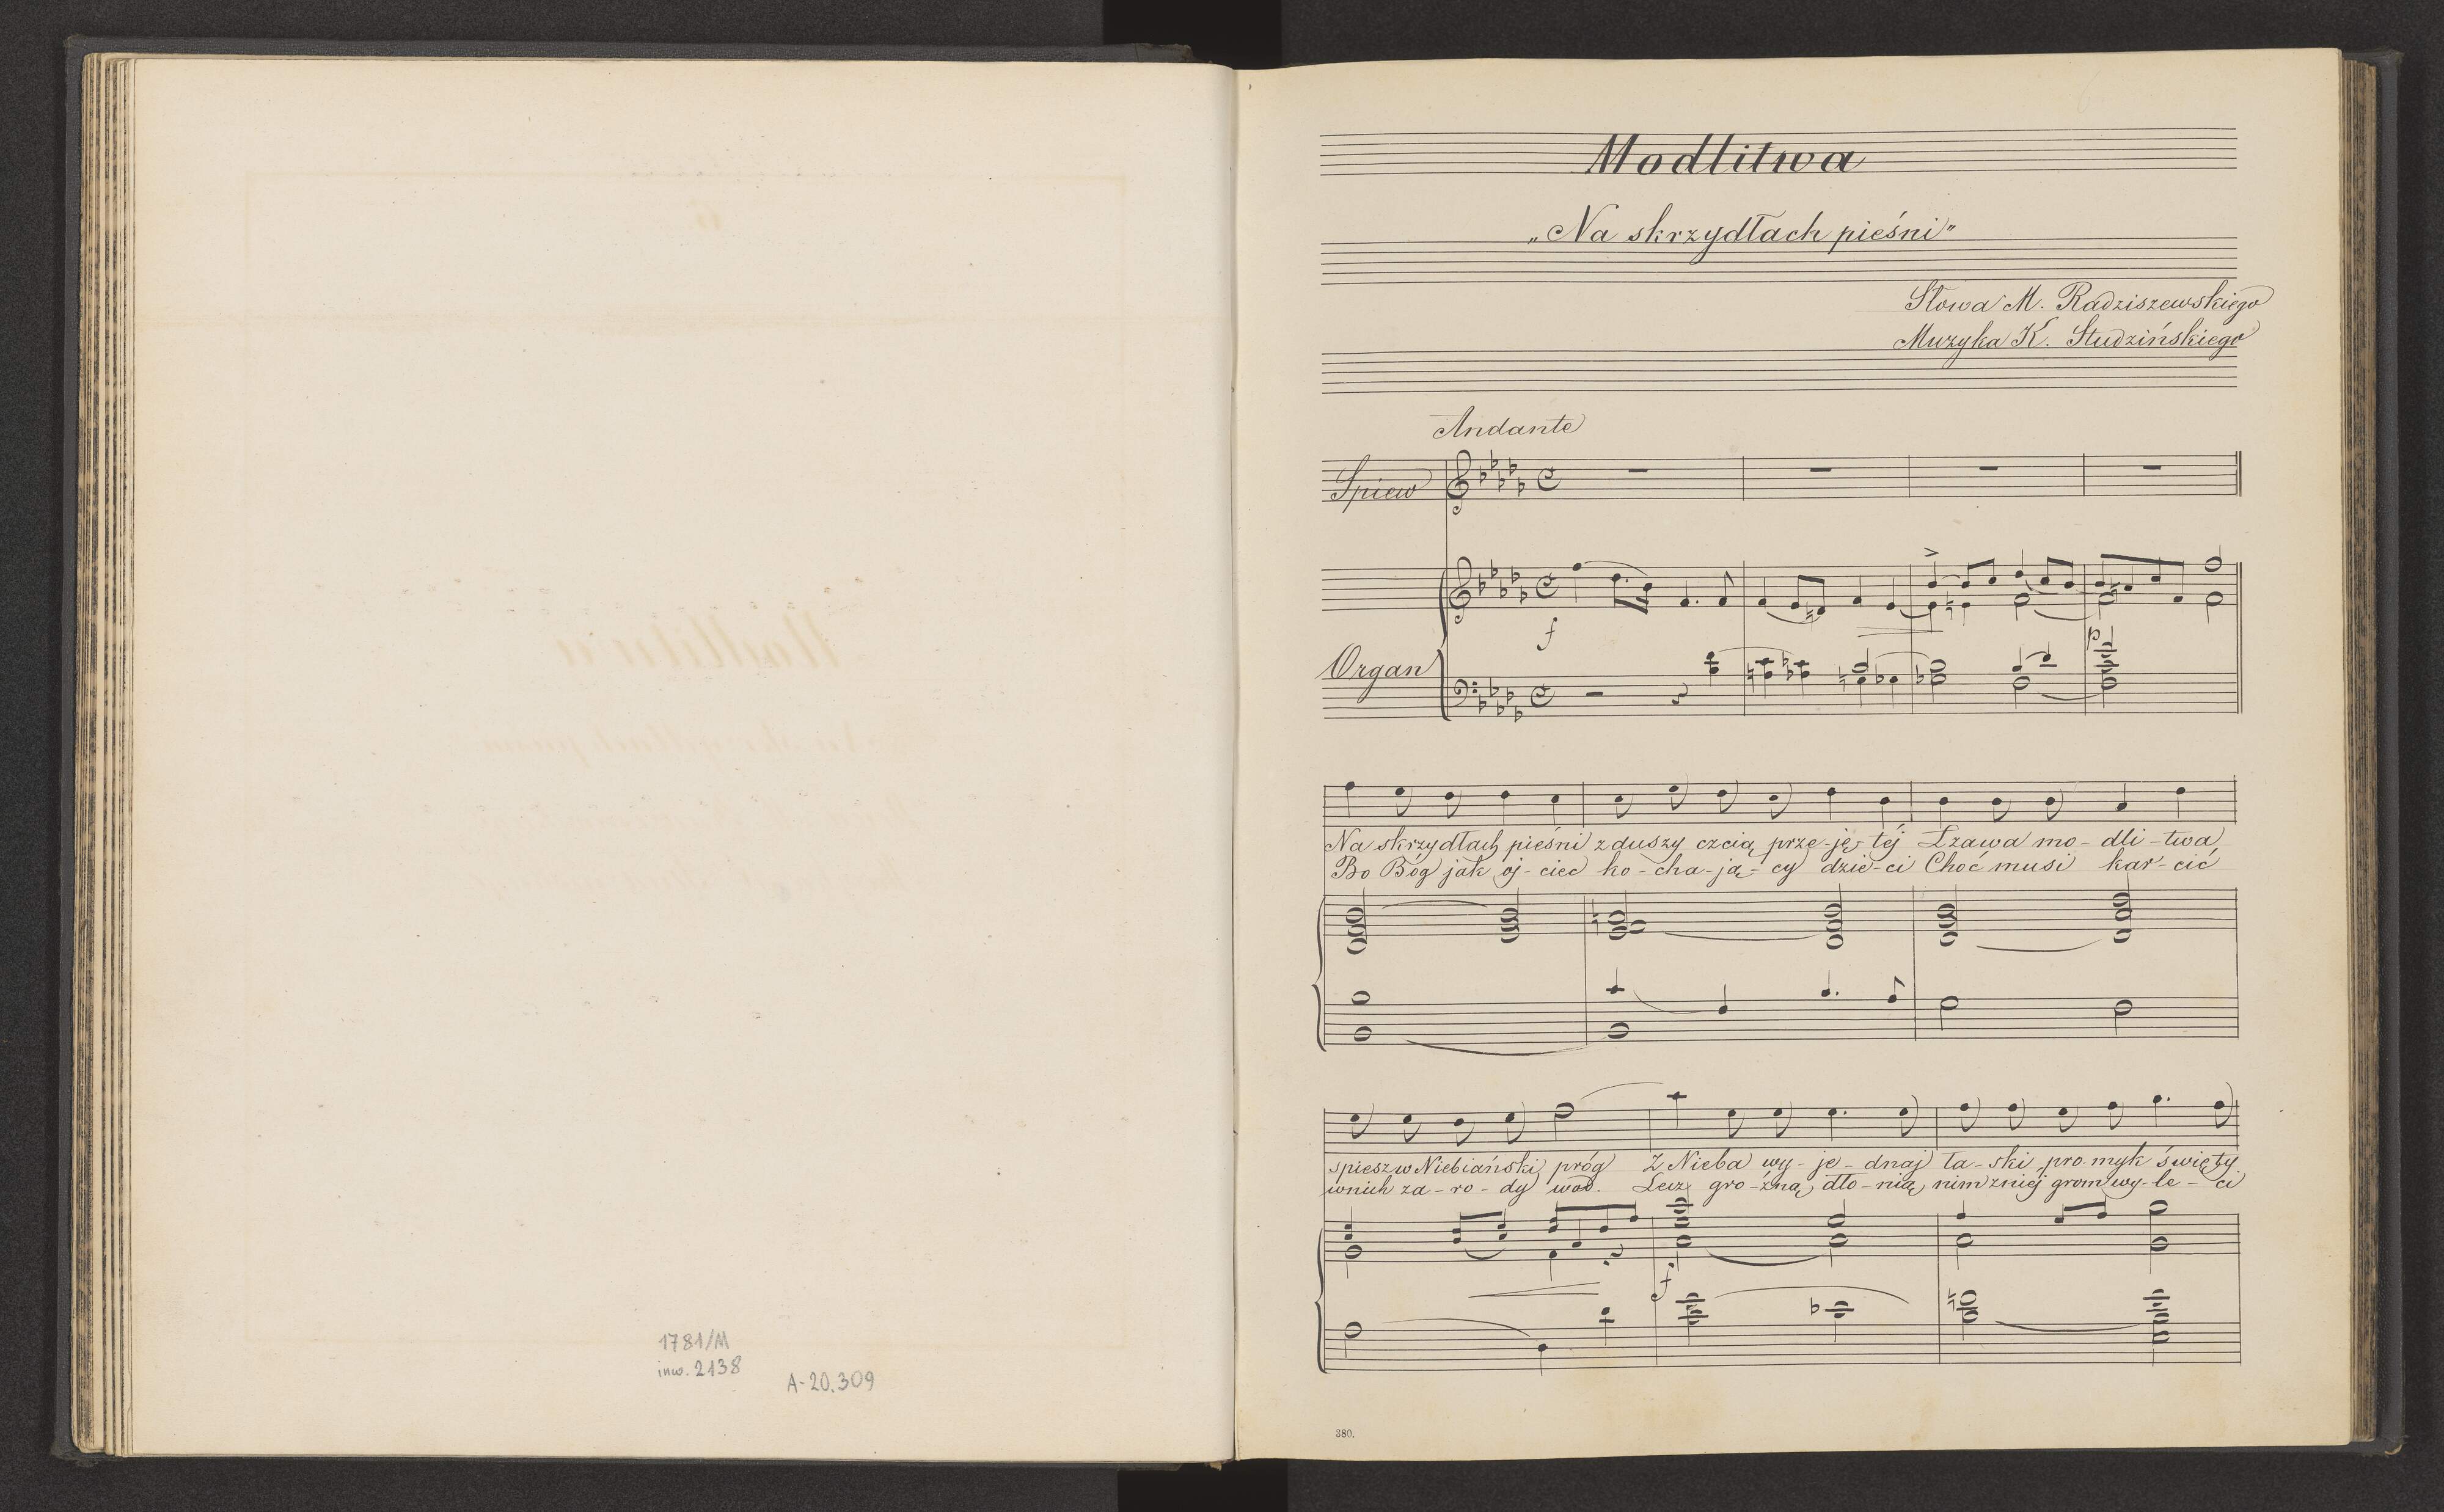 1781/M
inw. 2138
A-20.309
Modlitwa
„Na skrzydłach pieśni”
Słowa M. Radziszewskiego
Muzyka K. Studzińskiego
Andante
Spiew
f
Organ
p
Na skrzydłach pieśni z duszy czcią prze-ję-téj Łzawa mo-dli-twa
Bo Bóg jak oj-ciec ko-cha-ją-cy dzie-ci Choć musi kar-cić
spiesz w Niebiański próg Z Nieba wy-je-dnaj ła-ski pro-myk święty
wnich za-ro-dy wad. Lecz gro-źną dło-nią nim zniej grom wy-le-ci
f
380.